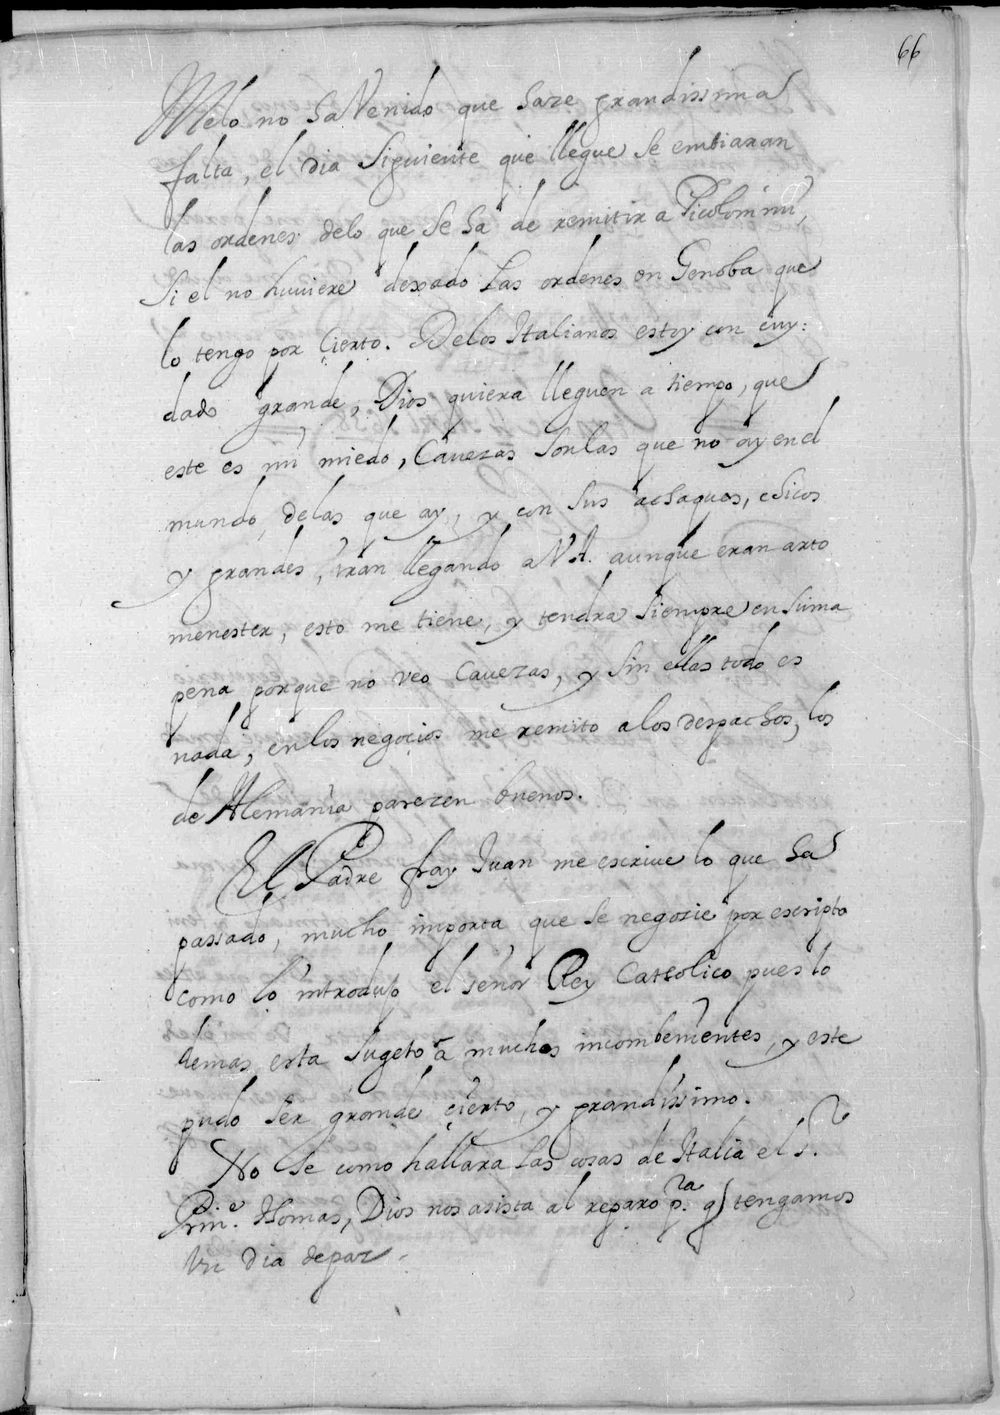 66
Melo no ha Venido que haze grandissima
falta, el dia siguiente que llegue se embiaran
las ordenes delo que se ha de remitir a Picolomini,
si el no huuiere dexado las ordenes en Genoba que
lo tengo por çierto. Delos Italianos estoy con cuy:
dado grande, Dios quiera lleguen a tiempo, que
este es mi miedo, Cauezas son las que no ay en el
mundo, delas que ay, y con sus achaques, chicos
y grandes, iran llegando a V A. aunque eran arto
menester, esto me tiene, y tendra siempre en suma
pena porque no veo Cauezas, y sin ellas todo es
nada, en los negoçios me remito a los despachos, los
de Alemania parezen buenos.
El Padre fray Juan me escriue lo que ha
passado, mucho importa que se negozie por escripto
como lo introdujo el señor Rey Catholico pues lo
demas esta sugeto á muchos incombenientes, y este
pudo ser grande çierto, y grandissimo.
No se como hallara las cosas de Italia el s.r
Prin.e Thomas, Dios nos asista al reparo p.ra q tengamos
vn dia de paz.